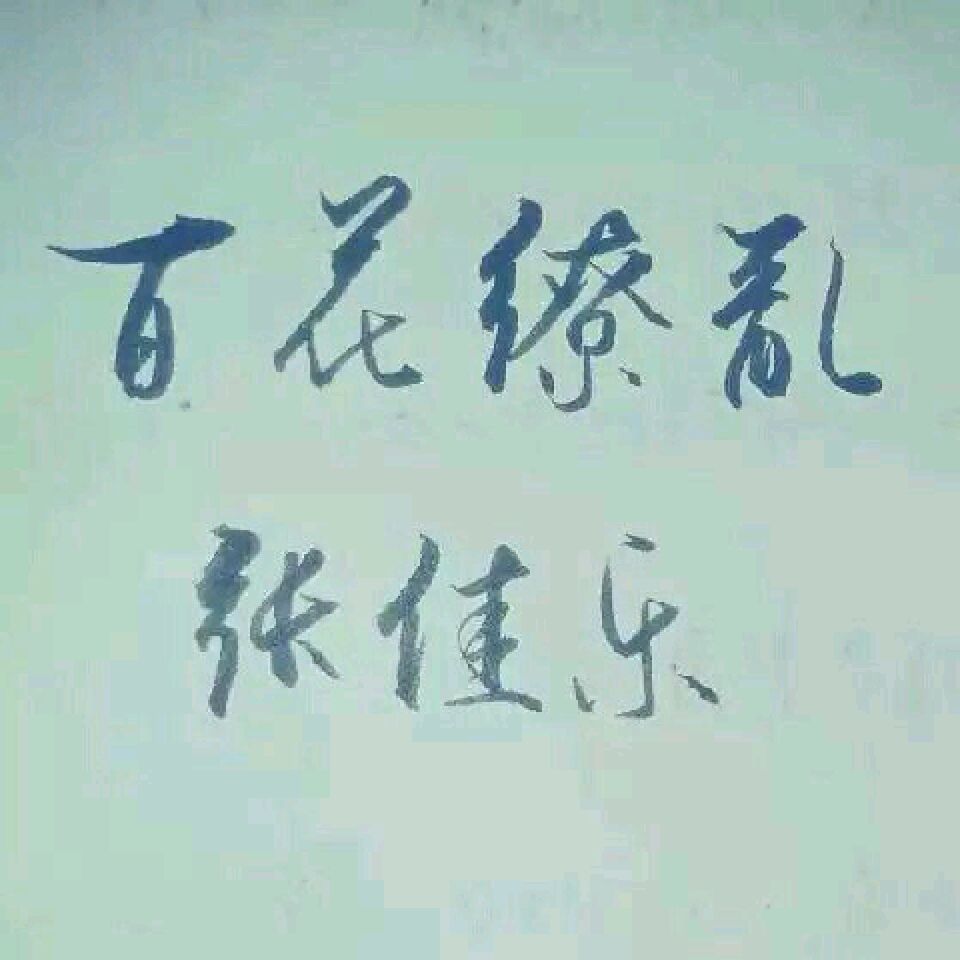 百花缭乱
张佳乐